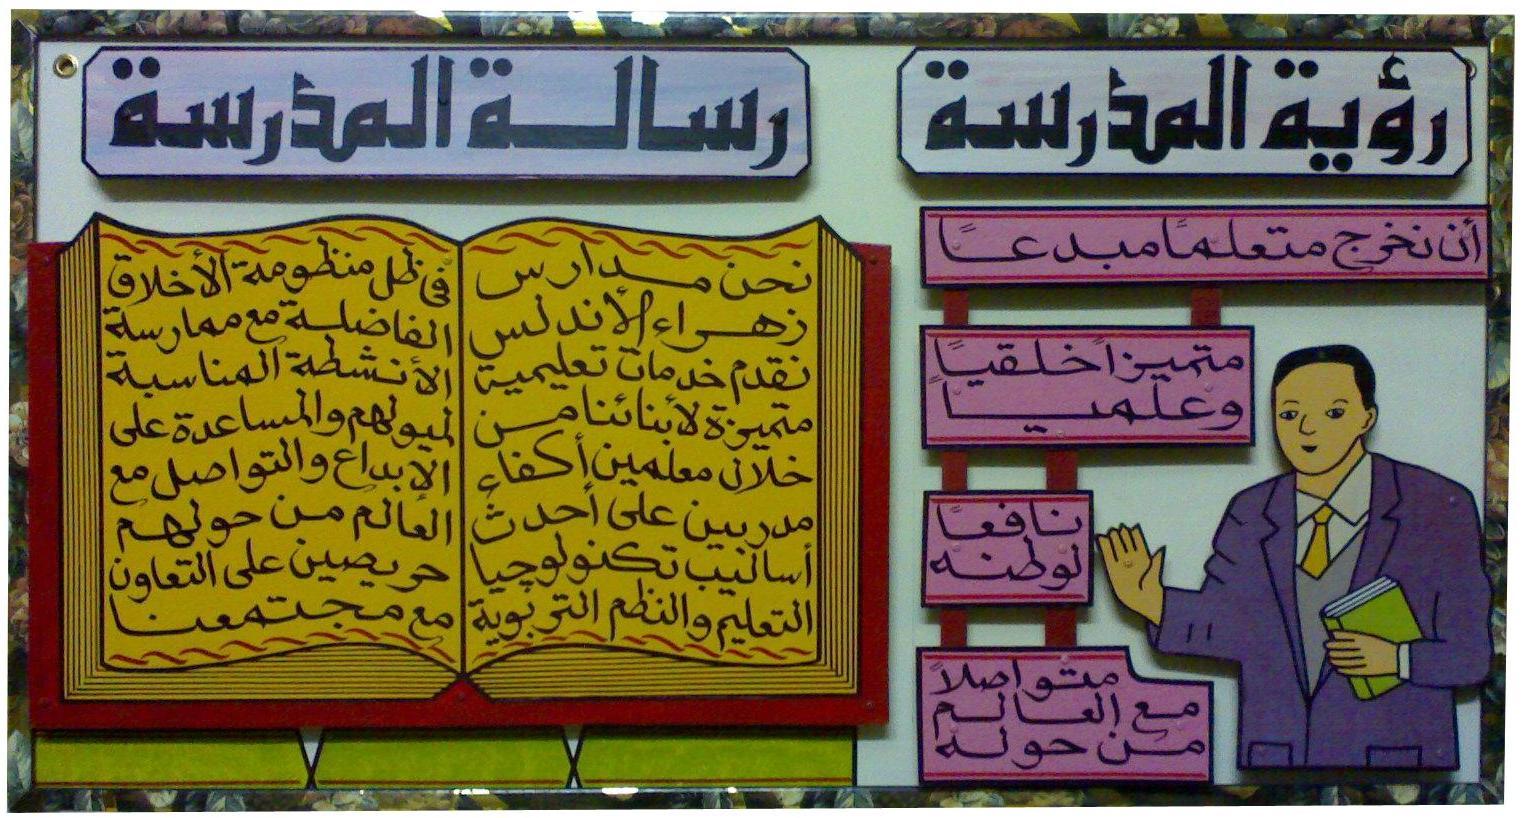 رؤية المدرسة
أن نخرج متعلمًا مبدعًا
متميزًا خلقيًا
وعلميًا
نافعًا
لوطنه
متواصلاً
مع العالم
من حوله
رسالة المدرسة
نحن مدارس
زهراء الأندلس
نقدم خدمات تعليمية
متميزة لأبنائنا من
خلال معلمين أكفاء
مدربين على أحدث
أساليب تكنولوچيا
التعليم والنظم التربوية
فى ظل منظومة الأخلاق
الفاضلة مع ممارسة
الأنشطة المناسبة
لميولهم والمساعدة على
الإبداع والتواصل مع
العالم من حولهم
حريصين على التعاون
مع مجتمعنا